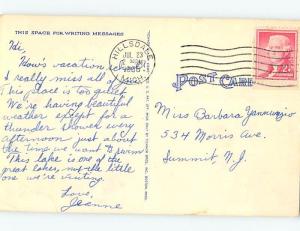 THIS SPACE FOR WRITING MESSAGES
Hi,
How's vacation
I really miss all of
This place is too quiet.
We're having beautiful
weather except for a
thunder shower every
afternoon just about
the time we want to swim
This lake is one of the
great lakes, not the little
one we're visiting.
Love,
Jeanne
HILLSDALE
JUL 23
POST CARD
Miss Barbara Iannuzzio
534 Morris Ave.
Summit, N.J.